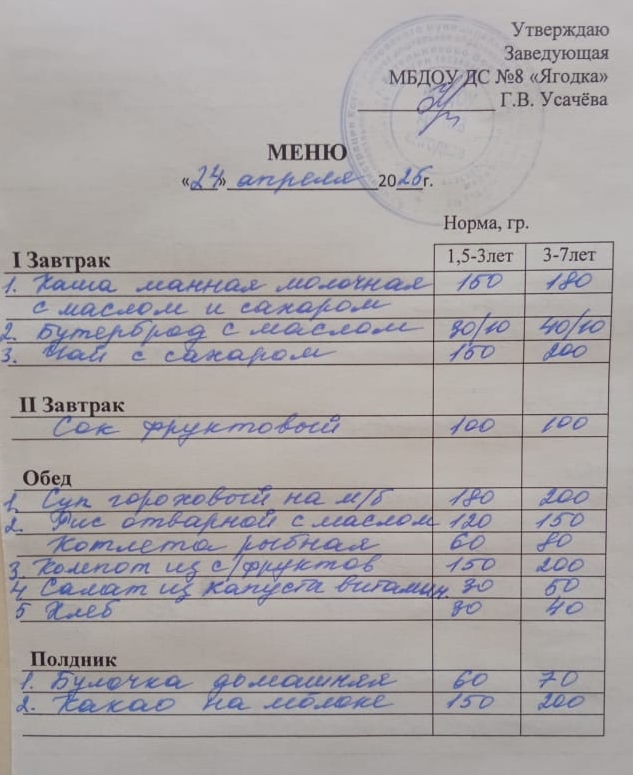 Утверждаю
Заведующая
МБДОУ ДС №8 «Ягодка»
Г.В. Усачёва
МЕНЮ
«24» апреля 2025г.
Норма, гр.
I Завтрак 1,5-3лет 3-7лет
1. Каша манная молочная 150 180
с маслом и сахаром
2. Бутерброд с маслом 30/10 40/10
3. Чай с сахаром 150 200
II Завтрак
Сок фруктовый 100 100
Обед
1. Суп гороховый на м/б 180 200
2. Рис отварной с маслом 120 150
Котлета рыбная 60 80
3. Компот из с/фруктов 150 200
4 Салат из капусты витамин. 30 50
5 Хлеб 30 40
Полдник
1. Булочка домашняя 60 70
2. Какао на молоке 150 200